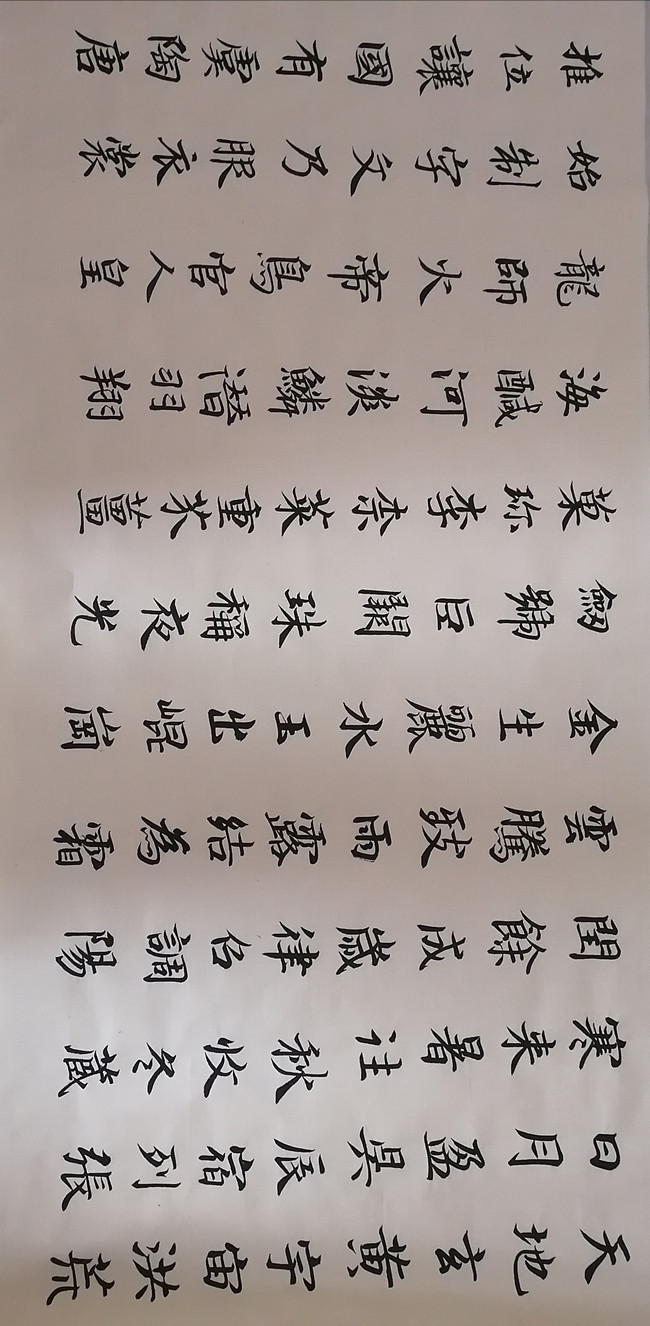 天地玄黃宇宙洪荒
日月盈昃辰宿列張
寒来暑往秋收冬藏
閏餘成歲律吕調陽
雲騰致雨露結為霜
金生麗水玉出崐崗
劒號巨闕珠稱夜光
菓珎李柰菜重芥薑
海醎河淡鱗潛羽翔
龍師火帝鳥官人皇
始制字文乃服衣裳
推位讓國有虞陶唐